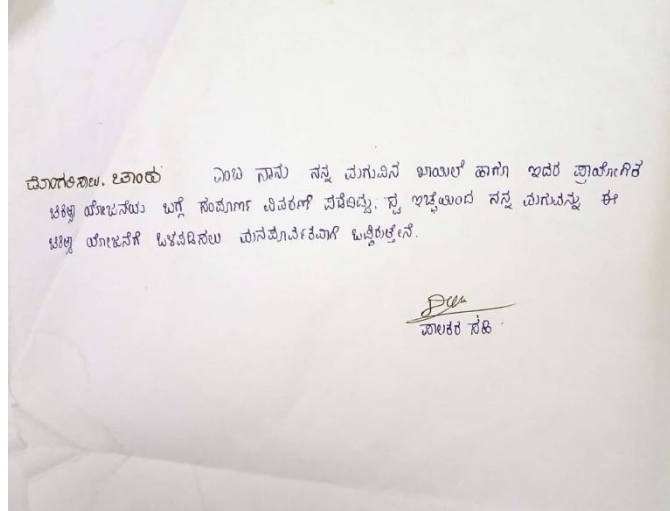 ಎಂಬ ನಾನು ನನ್ನ ಮಗುವಿನ ಖಾಯಿಲೆ ಹಾಗೂ ಇದರ ಪ್ರಾಯೋಗಿಕ
ಚಿಕಿತ್ಸಾ ಯೋಜನೆಯ ಬಗ್ಗೆ ಸಂಪೂರ್ಣ ವಿವರಣೆ ಪಡೆದಿದ್ದು, ಸ್ವ ಇಚ್ಛೆಯಿಂದ ನನ್ನ ಮಗುವನ್ನು ಈ
ಚಿಕಿತ್ಸಾ ಯೋಜನೆಗೆ ಒಳಪಡಿಸಲು ಮನಪೂರ್ವಕವಾಗಿ ಒಪ್ಪಿರುತ್ತೇನೆ.
ಪಾಲಕರ ಸಹಿ